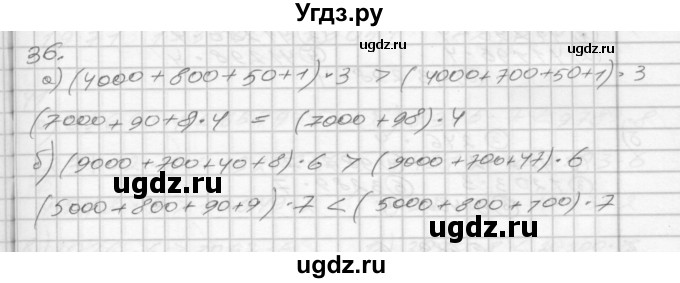 Угдз.ру
36.
а) (4000 + 800 + 50 + 1) · 3 > (4000 + 700 + 50 + 1) · 3
(7000 + 90 + 8) · 4 = (7000 + 98) · 4
б) (9000 + 700 + 40 + 8) · 6 > (9000 + 700 + 47) · 6
(5000 + 800 + 90 + 9) · 7 < (5000 + 800 + 700) · 7
ugdz.ru
ugdz.ru
ugdz.ru
ugdz.ru
ugdz.ru
ugdz.ru
ugdz.ru